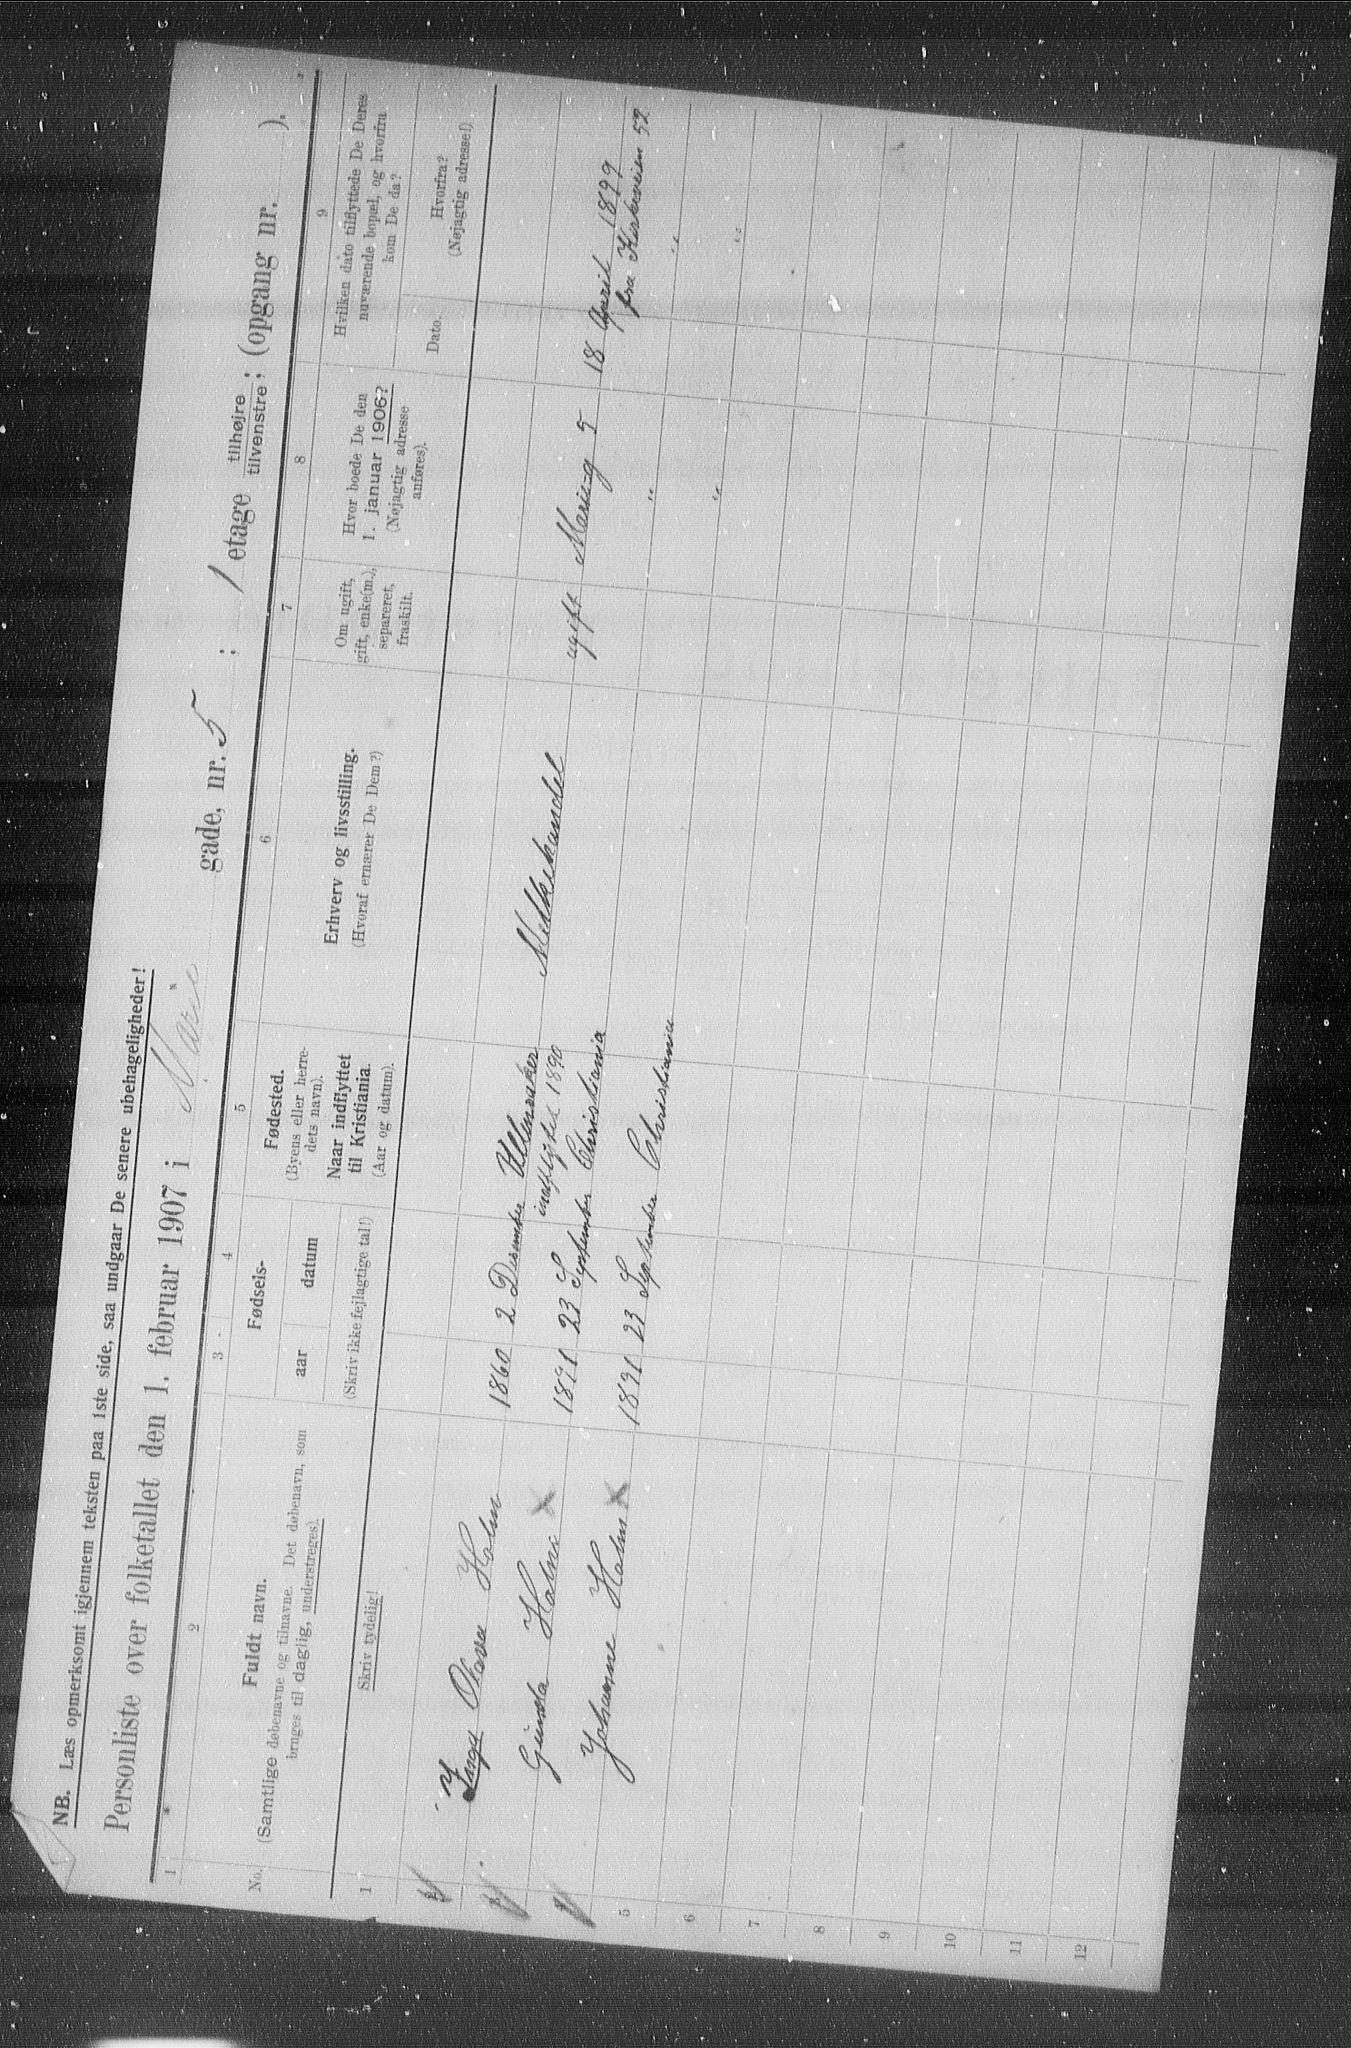 NB. Læs opmerksomt igjennem teksten paa 1ste side, saa undgaar De senere ubehageligheder!
Personliste over folketallet den 1. februar 1907 i Marie gade, nr. 5 ; 1 etage tilhøjre tilvenstre ; (opgang nr. ).
1 2 3 4 5 6 7 8 9
No.
Fuldt navn.
(Samtlige døbenavne og tilnavne. Det døbenavn, som
bruges til daglig, understreges).
Skriv tydelig!
Fødsels-
aar datum
(Skriv ikke fejlagtige tal!)
Fødested.
(Byens eller herre-
dets navn).
Naar indflyttet
til Kristiania.
(Aar og datum).
Erhverv og livsstilling.
(Hvoraf ernærer De Dem?)
Om ugift,
gift, enke(m.),
separeret,
fraskilt.
Hvor boede De den
1. januar 1906?
(Nøjagtig adresse
anføres).
Hvilken dato tilflyttede De Deres
nuværende bopæl, og hvorfra
kom De da?
Dato.
Hvorfra?
(Nøjagtig adresse!)
1
Inga Olava Holm 1860 2 Desember Ullensaker Melkehandel ugift Marieg 5 18 April 1899
indflyttet 1890 fra Kirkeveien 52
Gunda Holm X 1891 23 September Christiania " "
Johanne Holm X 1891 23 September Christiania " "
5
6
7
8
9
10
11
12